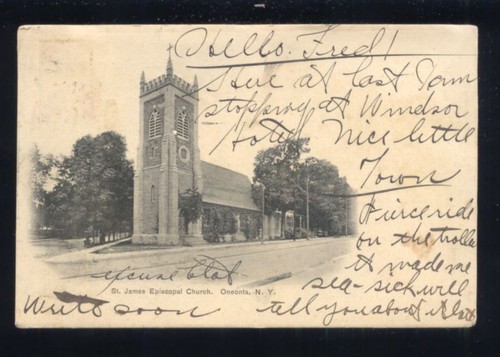 Hello. Fred!
Here at last I am
stopping at Windsor
Hotel Nice little
Town
Fierce ride
on the trolly
it made me
sea-sick will
tell you about it later
excuse blot
St. James Episcopal Church. Oneonta, N. Y.
Write soon